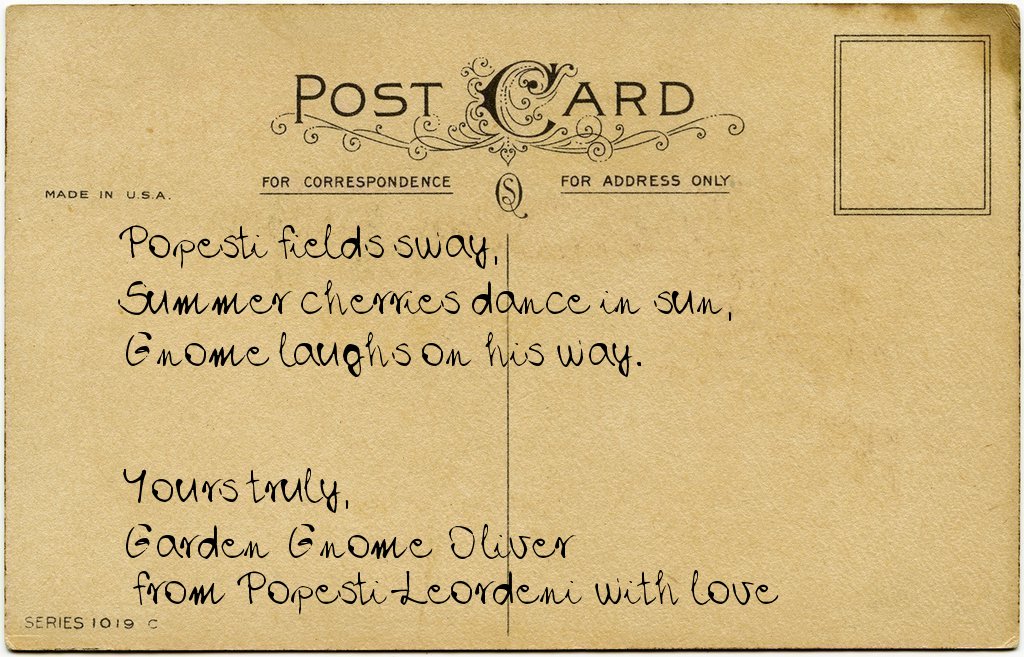 POST CARD
FOR CORRESPONDENCE
FOR ADDRESS ONLY
MADE IN U.S.A.
Popesti fields sway,
Summer cherries dance in sun,
Gnome laughs on his way.
Yours truly,
Garden Gnome Oliver
from Popesti-Leordeni with love
SERIES 1019 C